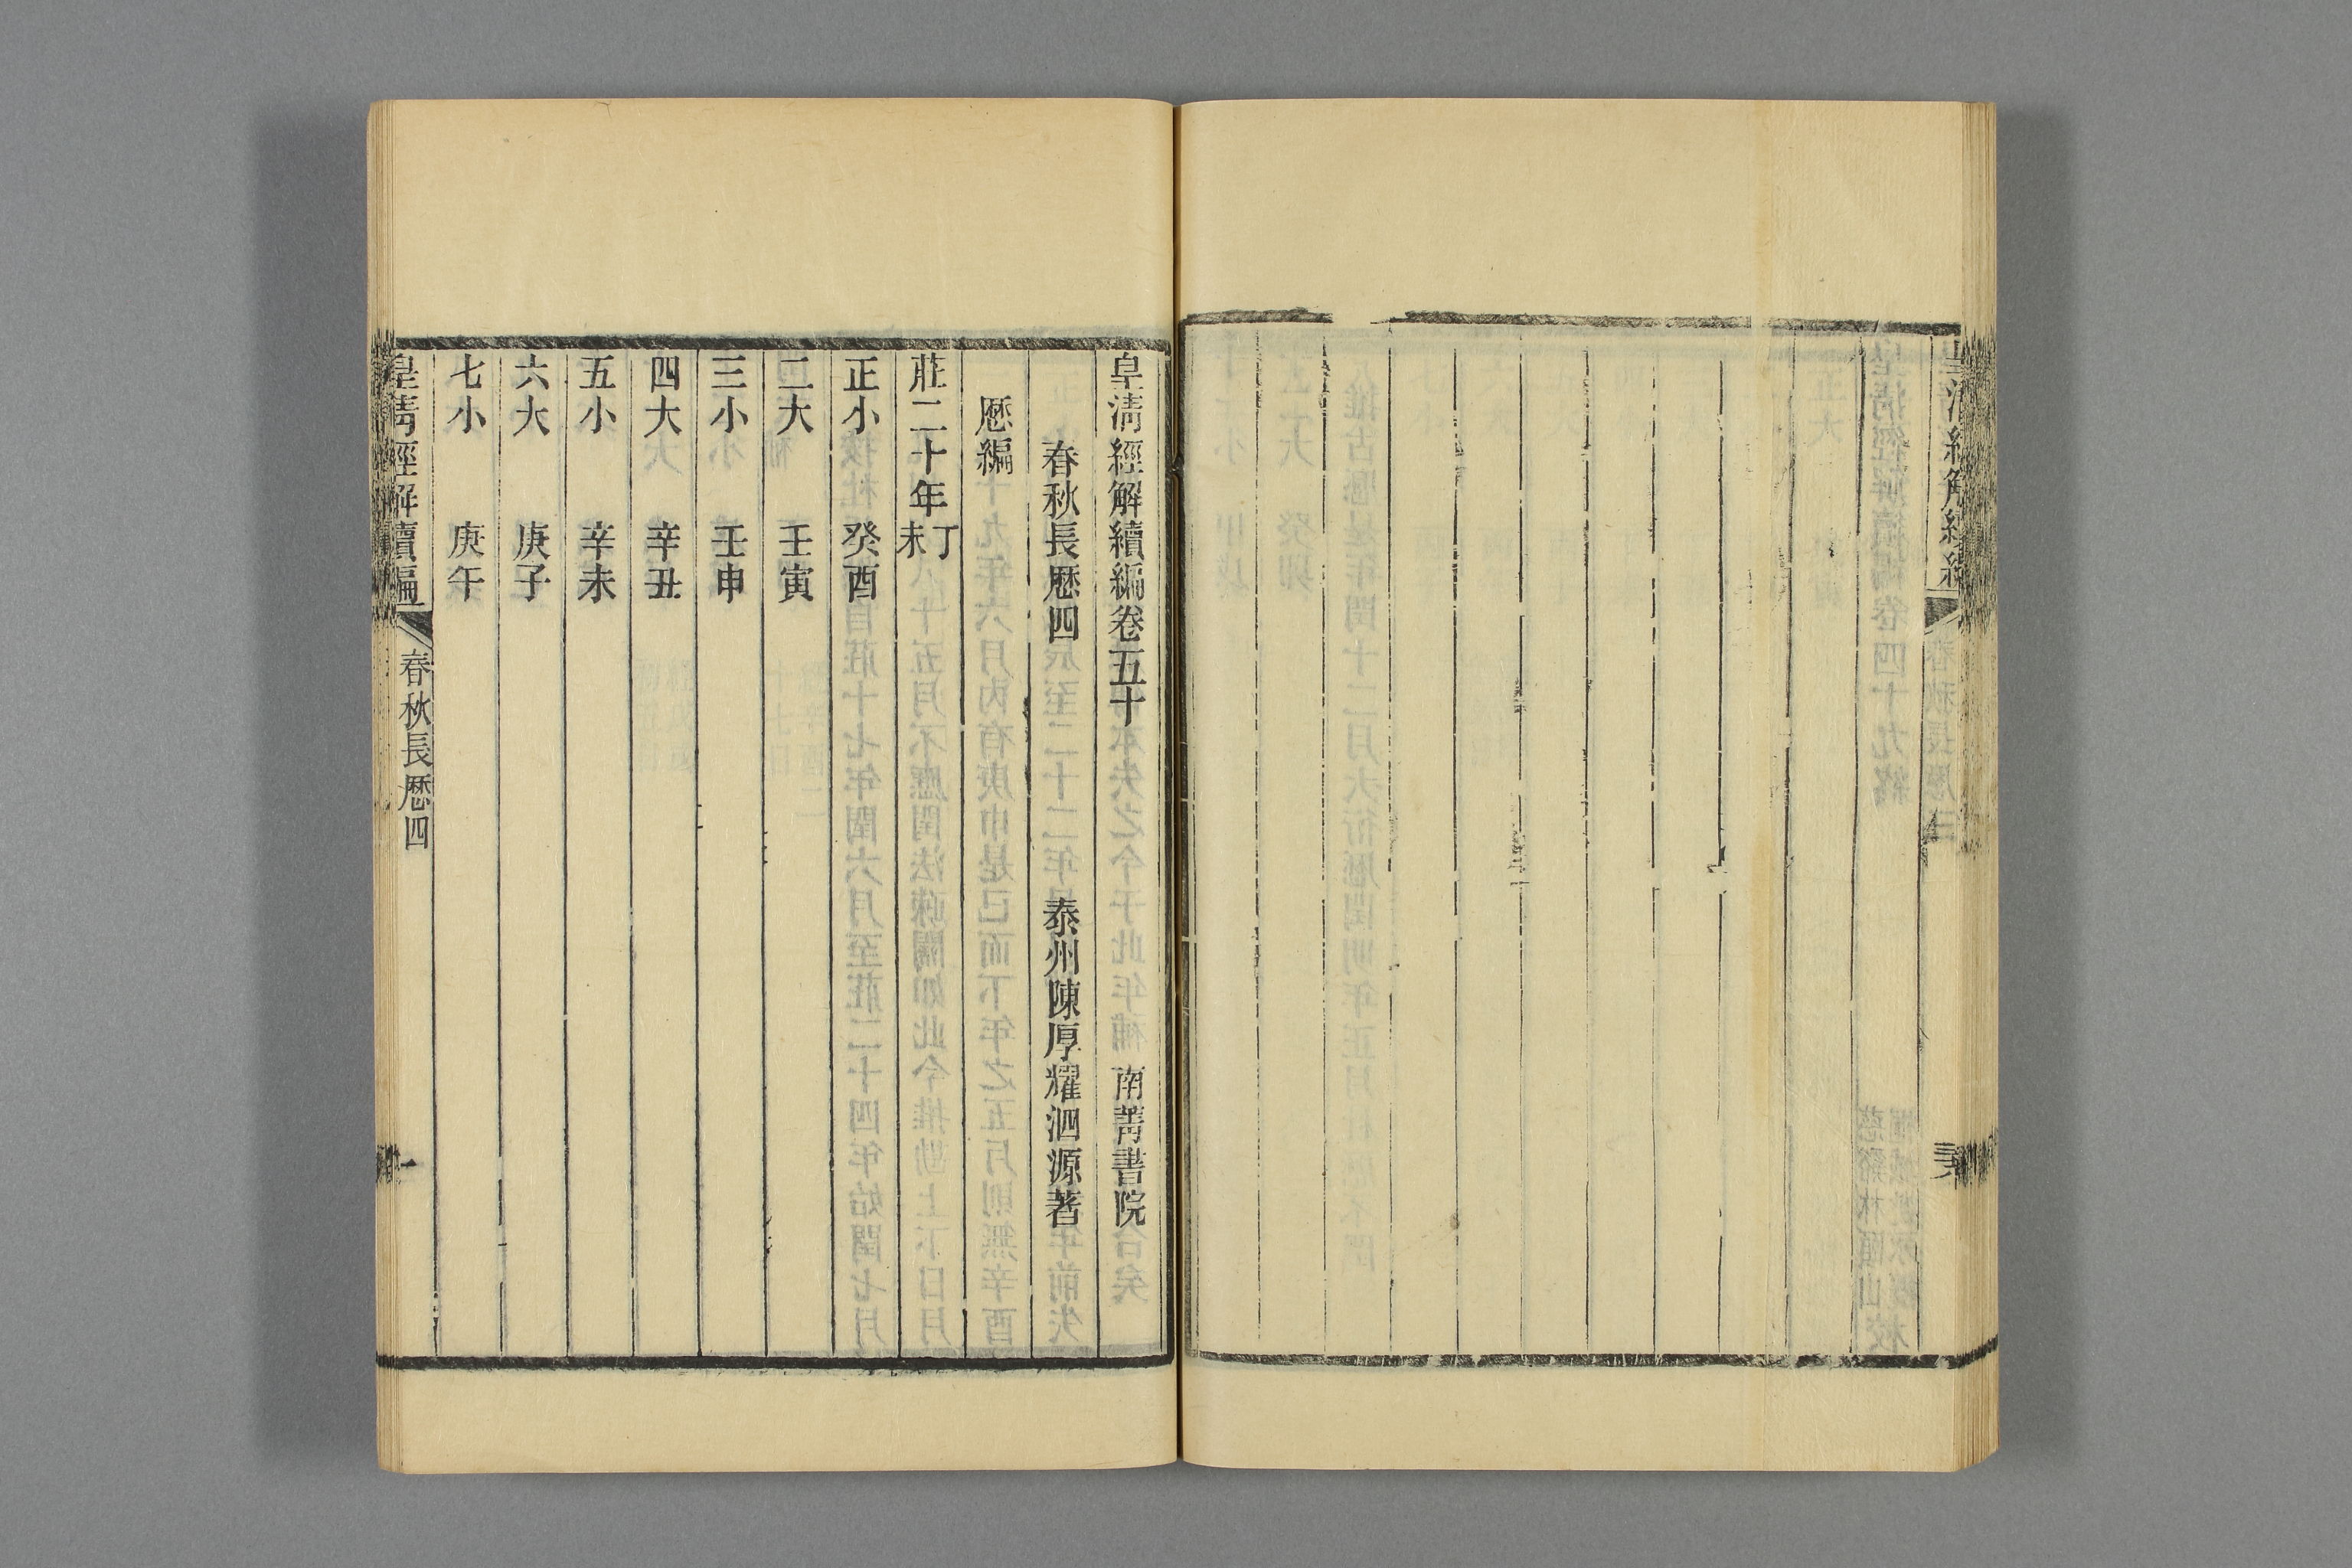 皇清經解續編卷五十 南菁書院
春秋長厯四 泰州陳厚耀泗源著
厯編
莊二十年丁未
正小 癸酉
二大 壬寅
三小 壬申
四大 辛丑
五小 辛未
六大 庚子
七小 庚午
皇清經解續編 春秋長厯四 一